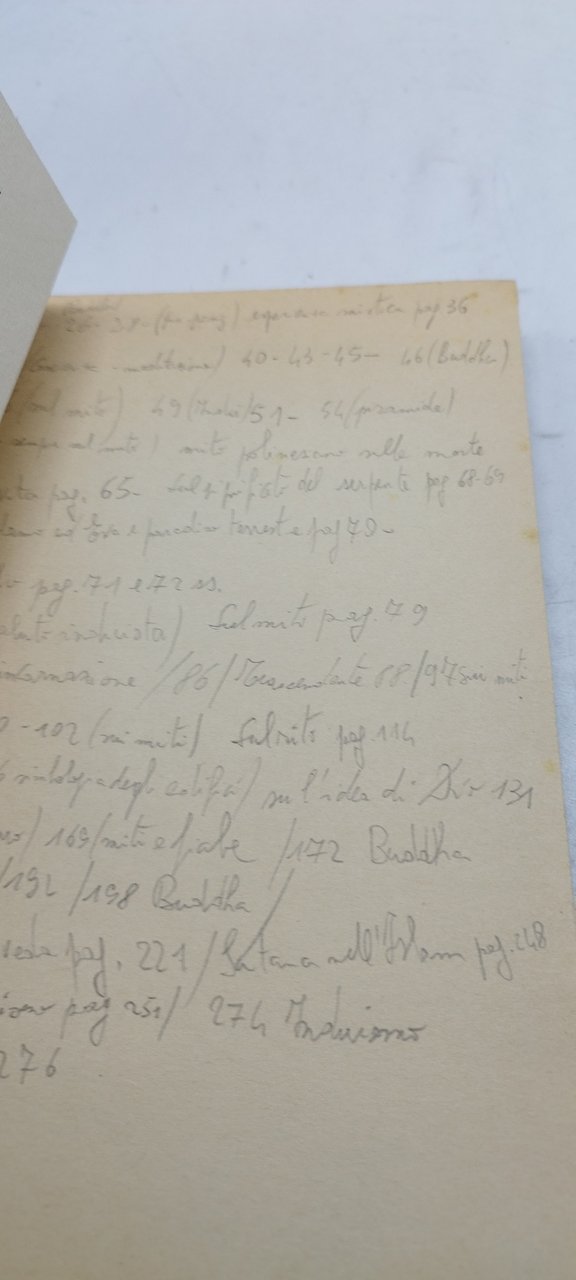 26- 38- esperienza mistica pag 36
meditazione) 40-43-45- 46 (Buddha)
(sul mito) 49 (Indú) 51- 54 (piramide)
sempre sul mito) mito polinesiano sulla morte
pag. 65- Sul significato del serpente pag 68-69
ed Eva e paradiso terrestre pag 70-
pag. 71 e 72 ss.
induista) Sul mito pag. 79
/86/ Trascendente 88/97 sui miti
-102 (sui miti) Sul rito pag 114
simbologia degli edifici) sull'idea di Dio 131
/169/ miti e fiabe /172 Buddha
/192 /198 Buddha/
pag. 221 / Satana nell'Islam pag. 248
pag 251/ 274 Induismo
276